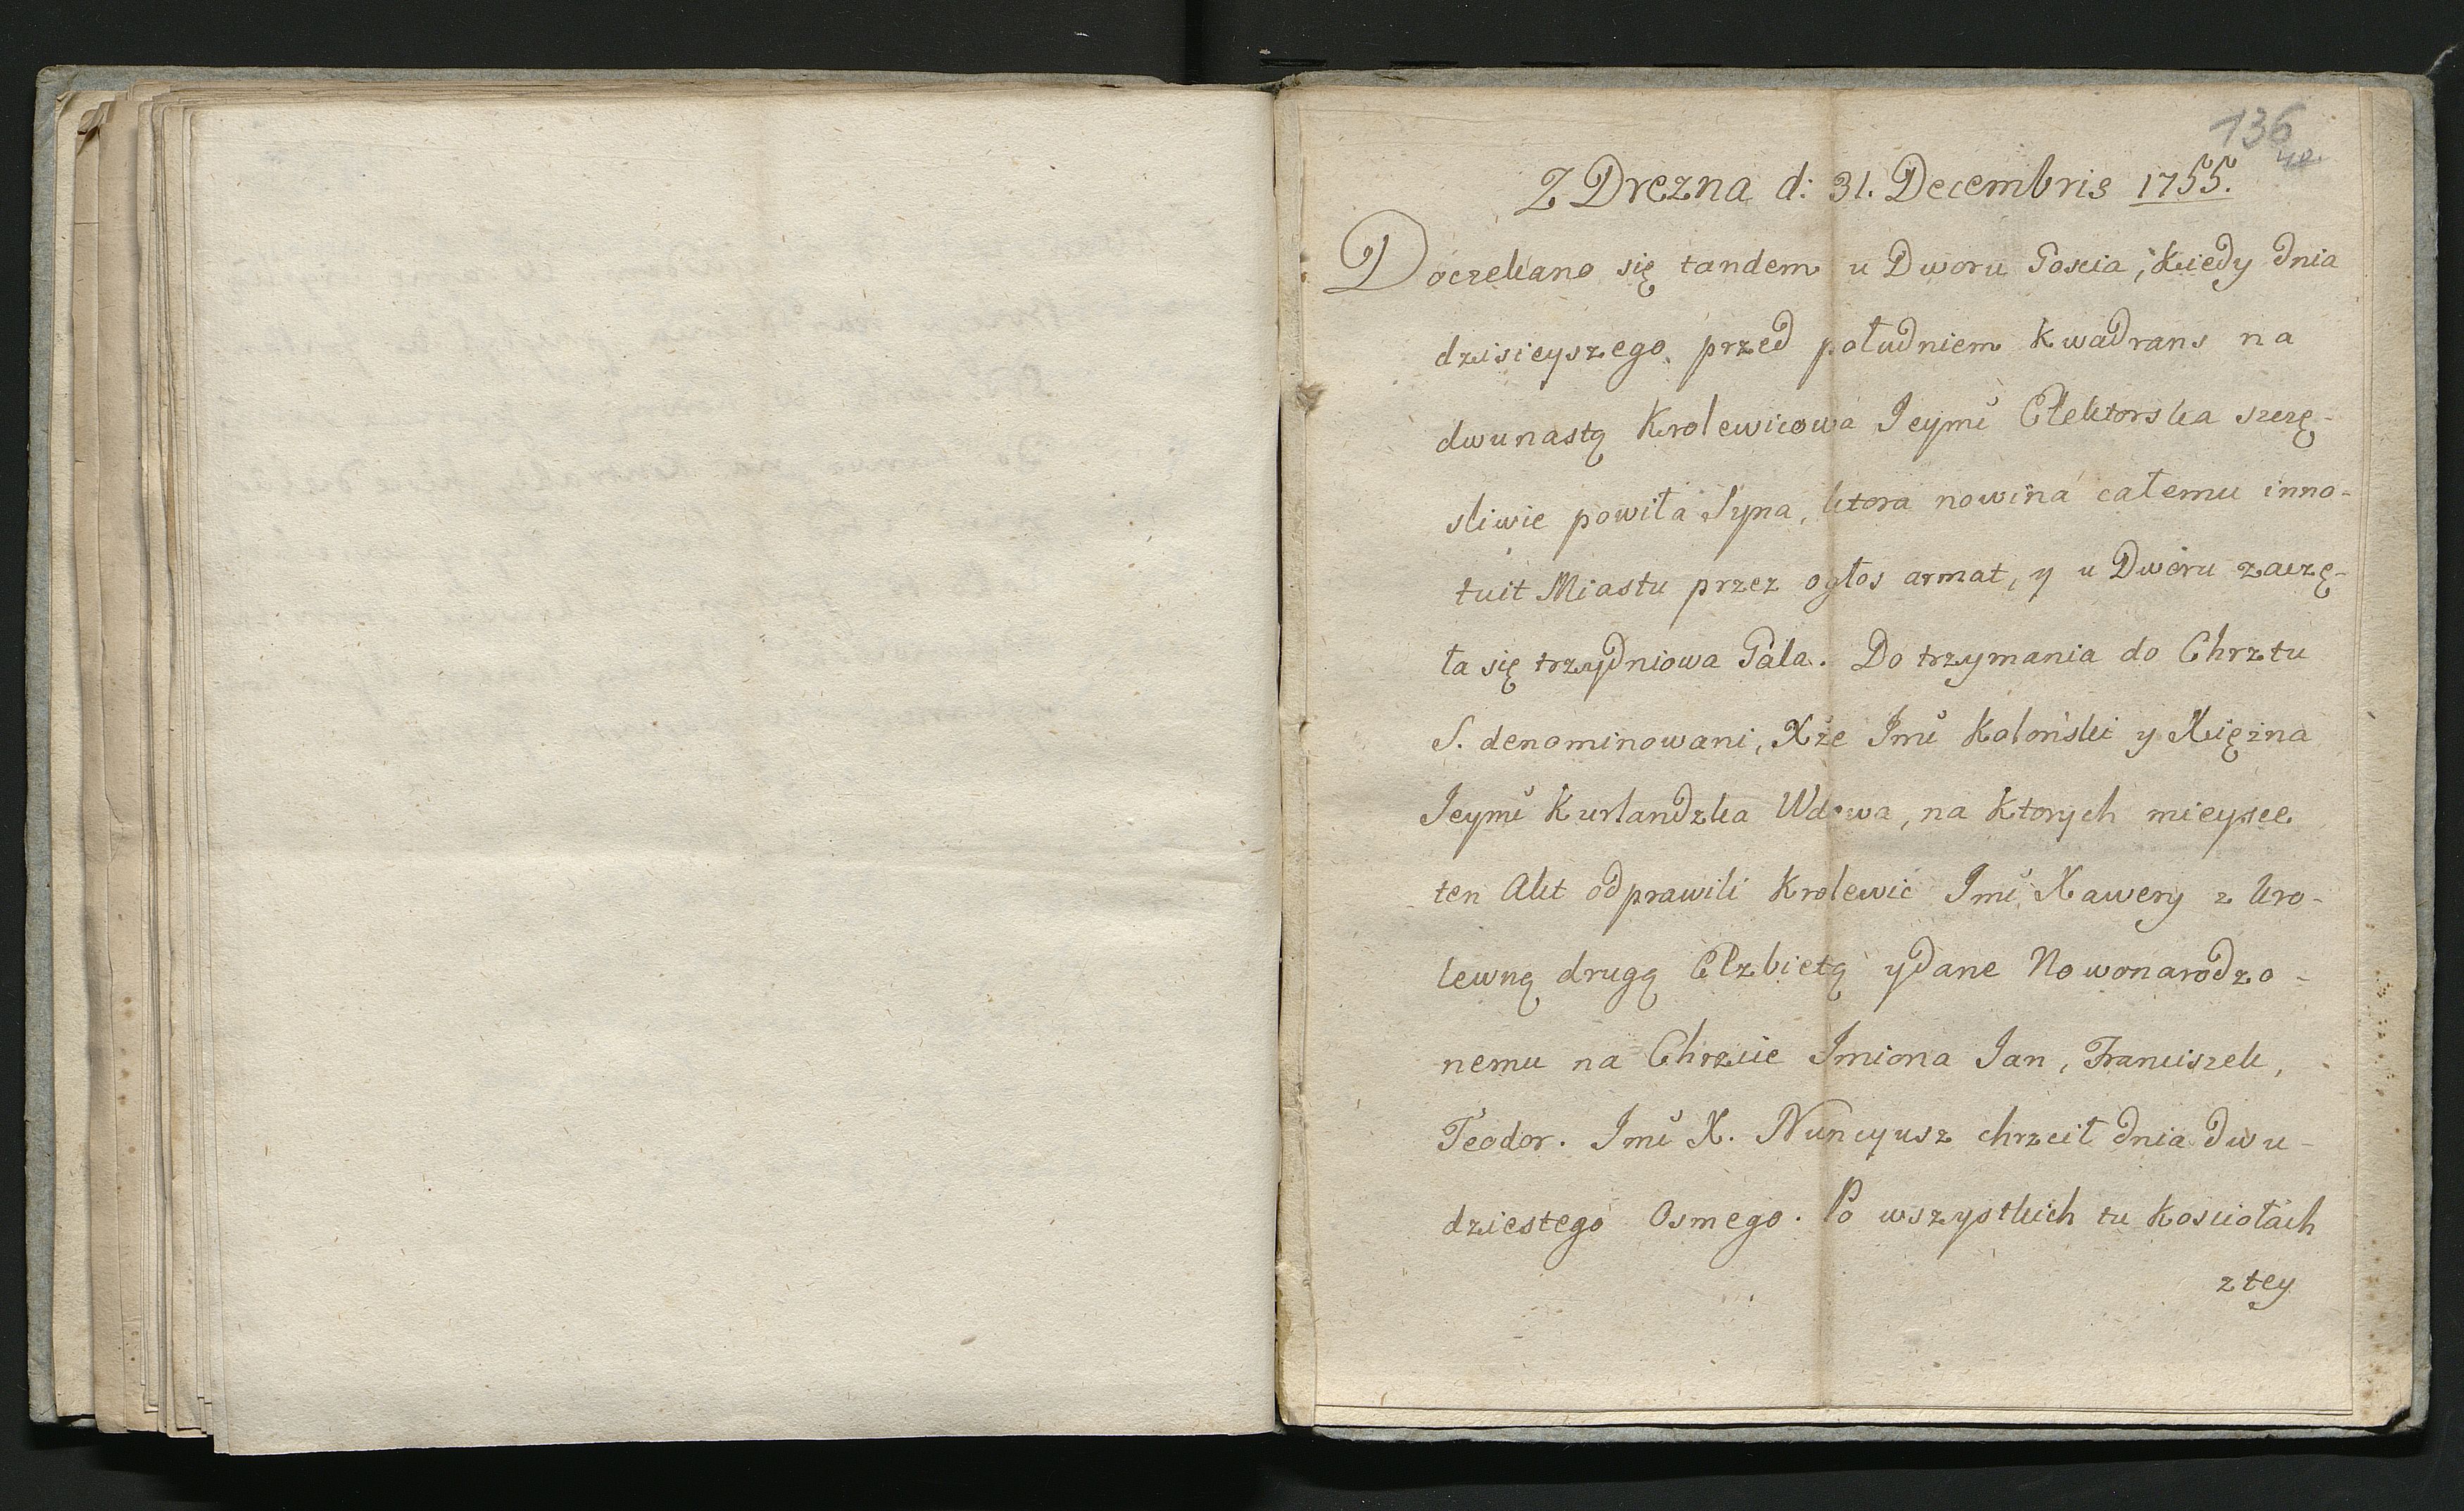 136
Z Drezna d: 31. Decembris 1755.
Doczekano się tandem u Dworu Goscia, kiedy dnia
dzisieyszego przed południem kwadrans na
dwunastą Krolewicowa Jeymć Elektorska szczę-
sliwie powiła Syna, ktora nowina całemu inno-
tuit Miastu przez ogłos armat, y u Dworu zaczę-
ła się trzydniowa Gala. Do trzymania do Chrztu
S. denominowani, Xże Jmć Koloński y Xiężna
Jeymć Kurlandzka Wdowa, na ktorych mieysce
ten Akt odprawili Krolewic Jmć Xawery z Kro-
lewną drugą Elzbietą y dane Nowonarodzo-
nemu na Chrzcie Jmiona Jan, Franciszek,
Teodor. Jmć X. Nuncyusz chrzcił dnia dwu-
dziestego Osmego. Po wszystkich tu Kosciołach
z tey